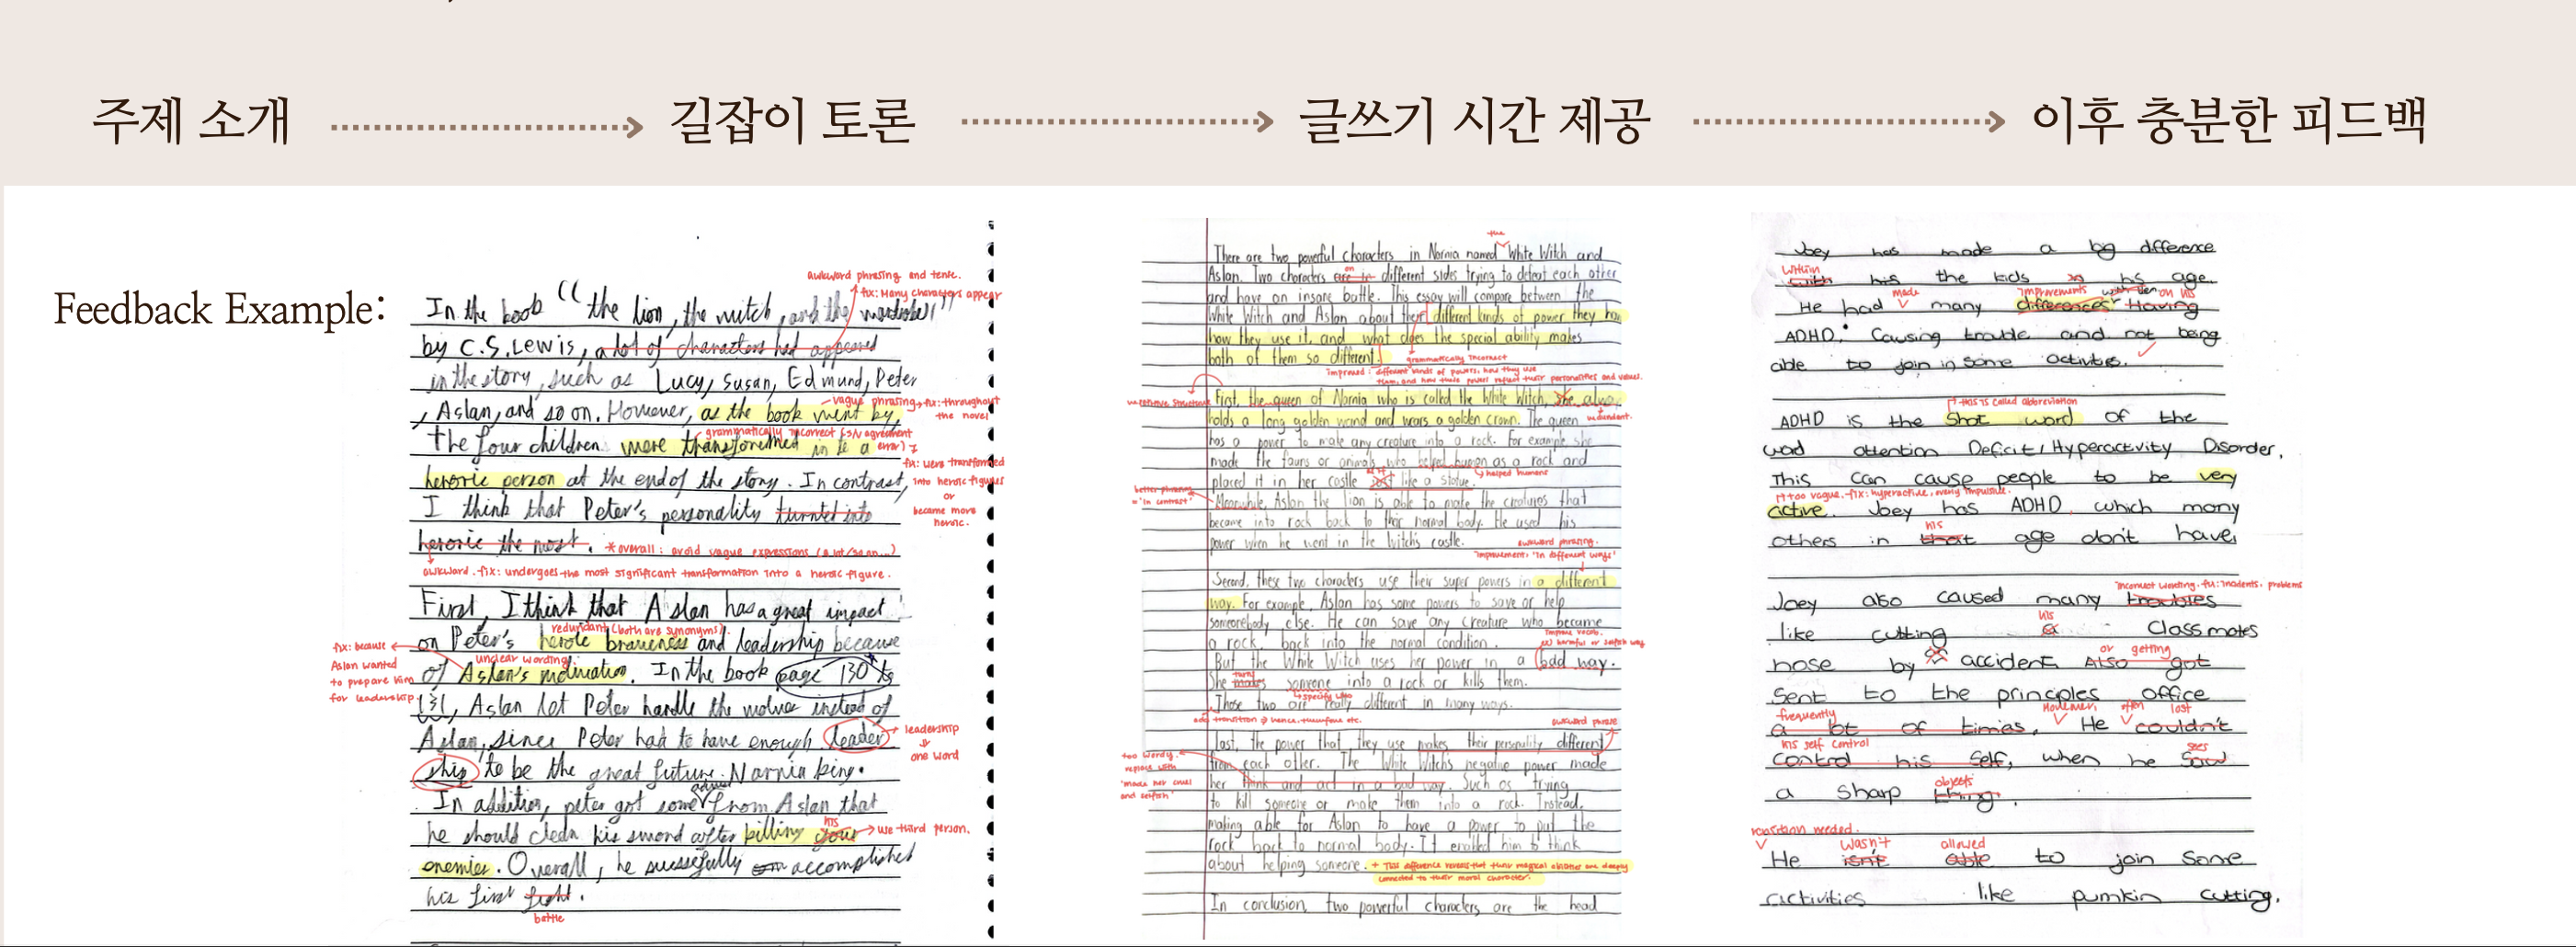 주제 소개
길잡이 토론
글쓰기 시간 제공
이후 충분한 피드백
Feedback Example:
awkward phrasing and tense.
fix: Many characters appear
In the book "the lion, the witch, and the wardrobe"
by C.S. Lewis, a lot of characters had appeared
in the story, such as Lucy, Susan, Edmund, Peter
vague phrasing → fix: throughout
the novel
, Aslan, and so on. However, as the book went by
grammatically incorrect (S/V agreement
error)
the four children were transforemed in to a
fix: were transformed
into heroic figures
or
became more
heroic.
heroric person at the end of the story. In contrast,
I think that Peter's personality turnted into
heroric the most.
*overall: avoid vague expressions (a lot/so on...)
awkward. fix: undergoes the most significant transformation into a heroic figure.
First, I think that Aslan has a great impact
redundant (both are synonyms).
on Peter's heroic braveness and leadership because
fix: because
Aslan wanted
to prepare him
for leadership
unclear wording.
of Aslan's motivation. In the book page 130 to
131, Aslan let Peter handle the wolves instead of
Aslan, since Peter had to have enough leader
leadership
one word
ship to be the great future Narnia king.
advice
In addition, peter got some from Aslan that
his
he should clean his sword after killing your
we third person.
enemies. Overall, he sucessfully accomplished
his first fight.
battle
the
There are two powerful characters in Narnia named White Witch and
on
Aslan. Two characters are in different sides trying to defeat each other
and have an insane battle. This essay will compare between the
White Witch and Aslan about their different kinds of power they has
how they use it, and what does the special ability makes
both of them so different.
grammatically incorrect
improved: different kinds of powers, how they use
them, and how these powers reflect their personalities and values.
First, the queen of Narnia who is called the White Witch, She also
holds a long golden wand and wears a golden crown. The queen
redundant.
has a power to make any creature into a rock. For example she
made the fauns or animals who helped human as a rock and
helped humans
placed it in her castle just like a statue.
better phrasing
= 'in contrast'
Meanwhile, Aslan the lion is able to make the creatures that
became into rock back to their normal body. He used his
power when he went in the Witch's castle.
awkward phrasing.
improvement: 'in different ways'
Second, these two characters use their super powers in a different
way. For example, Aslan has some powers to save or help
somebody else. He can save any creature who became
a rock, back into the normal condition.
improve vocab.
ex) harmful or selfish way
But the White Witch uses her power in a bad way.
turns
She makes someone into a rock or kills them.
specify who
Those two are really different in many ways.
add transition → hence, therefore etc.
awkward phrase
Last, the power that they use makes their personality different
from each other. The White Witch's negative power made
too wordy
replace with
'made her cruel
and selfish'
her think and act in a bad way. Such as trying
to kill someone or make them into a rock. Instead,
making able for Aslan to have a power to put the
rock back to normal body. It enabled him to think
about helping someone.
+ This difference reveals that their magical abilities are deeply
connected to their moral character.
In conclusion, two powerful characters are the head
Joey has made a big difference
within
with his the kids in his age.
made improvements on his
He had many differences Having
ADHD. Causing trouble and not being
able to join in some activities.
this is called abbreviation
ADHD is the Shot word of the
wod attention Deficit/Hyperactivity Disorder,
This can cause people to be very
too vague. fix: hyperactive, overly impulsive.
active. Joey has ADHD which many
his
others in that age don't have,
incorrect wording. fix: incidents, problems
Joey also caused many troubles
his
like cutting a Classmates
or getting
nose by accident Also got
Sent to the principles office
frequently
However, often lost
a lot of times. He couldn't
his self control
sees
Control his self, when he saw
objects
a sharp thing.
transition needed.
wasn't allowed
He isn't able to join some
activities like pumkin cutting.